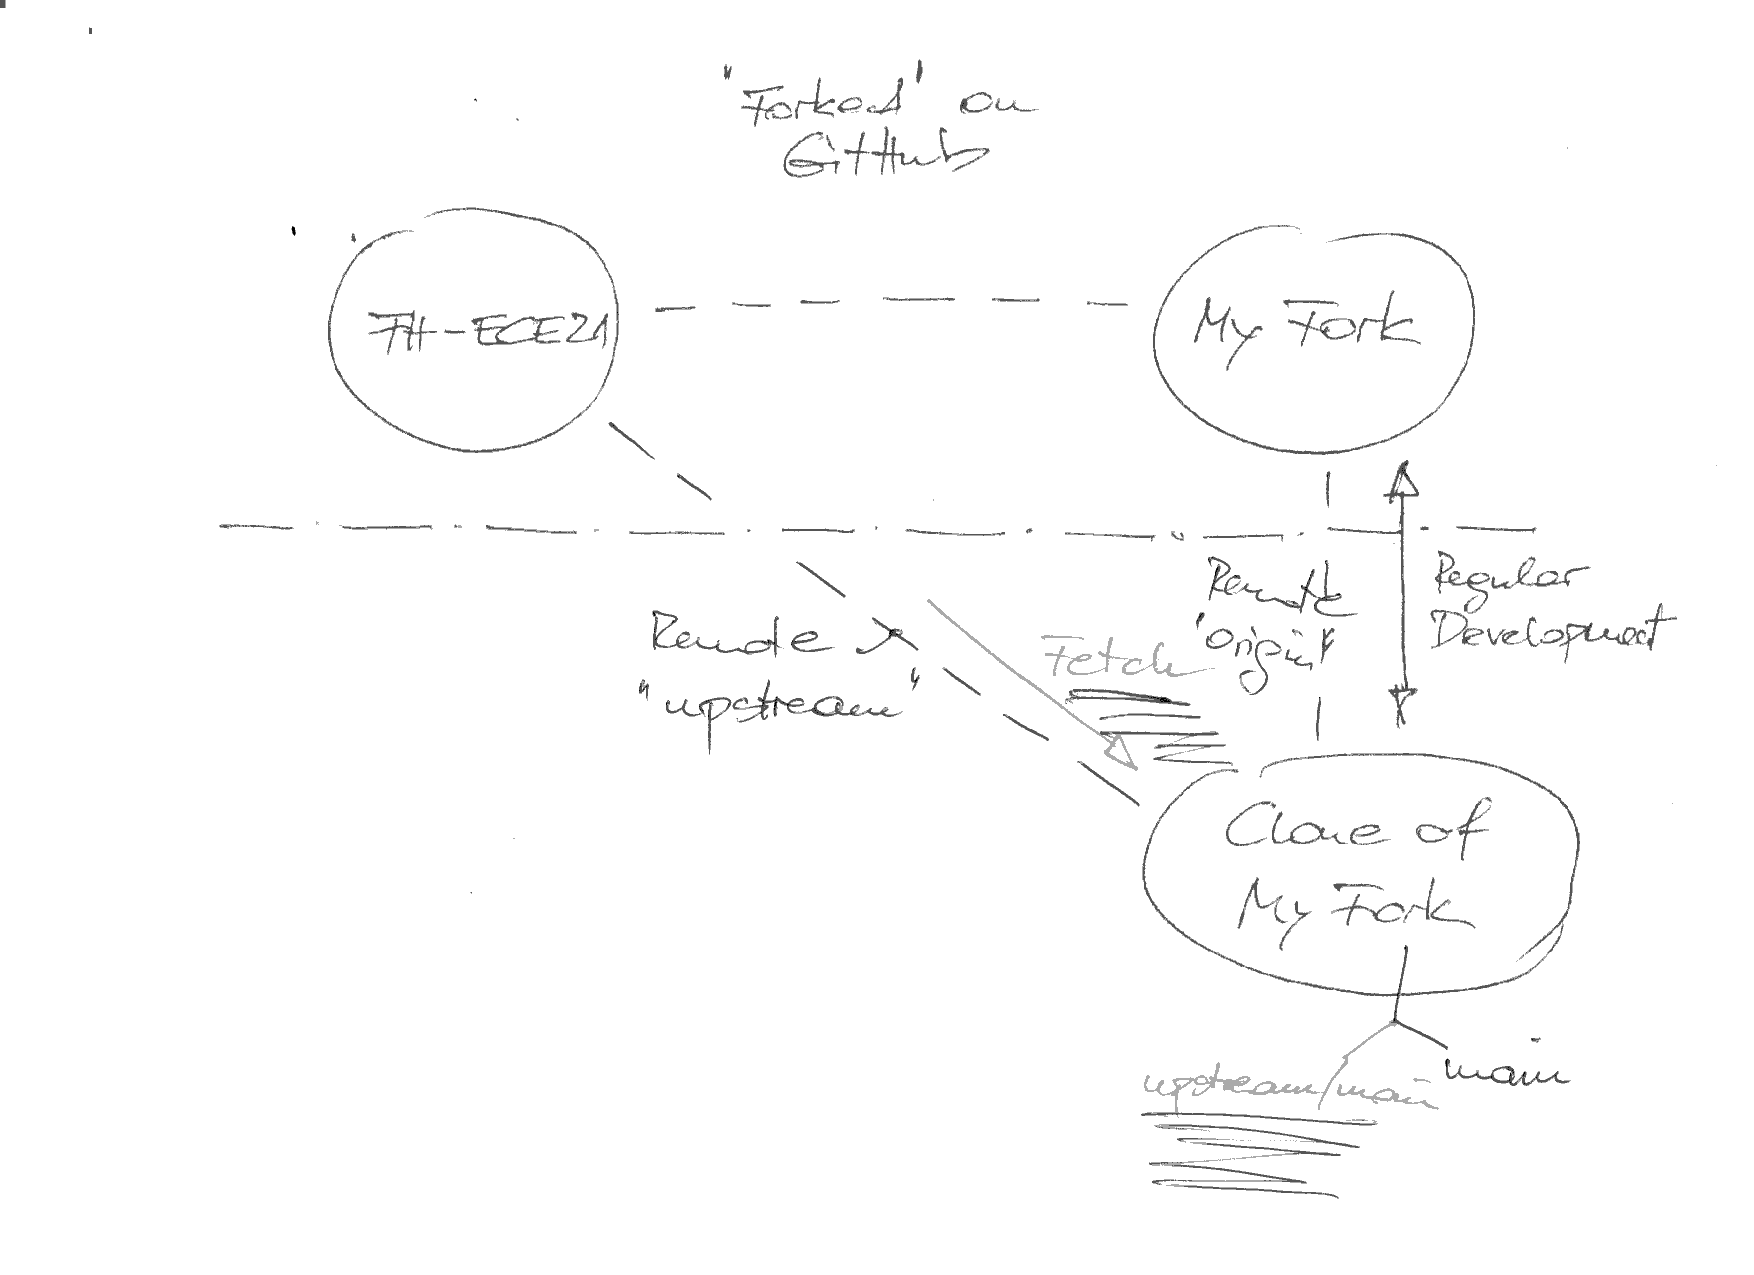 "Forked" on
GitHub
FH-ECE21
My Fork
Remote
"upstream"
Fetch
Remote
"origin"
Regular
Development
Clone of
My Fork
upstream/main
main